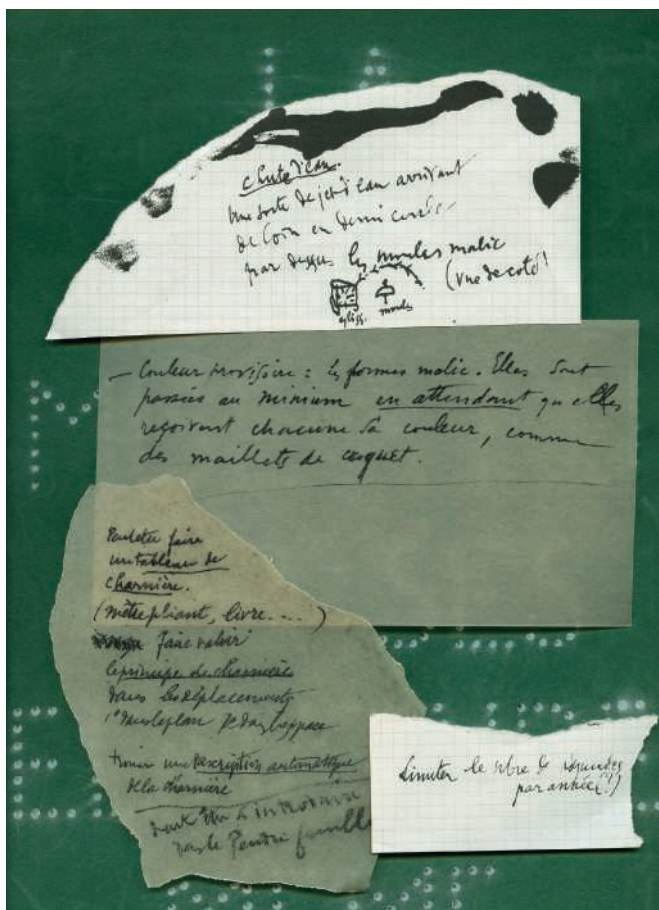 chute d'eau.
Une sorte de jet d'eau arrivant
de loin en demi cercle
par dessus les moules malic
(vue de coté)
église.
moules
— Couleur provisoire : les formes malic. Elles sont
passées au minium en attendant qu'elles
reçoivent chacune sa couleur, comme
des maillets de croquet.
Peut être faire
un tableau de
charnière.
(mètre pliant, livre....)
faire valoir
le principe de charnière
dans les déplacements
1° dans le plan 2° dans l'espace
trouver une description automatique
de la charnière
introduire
dans le Pendu femelle
Limiter le nbre de rdymades
par année (!)